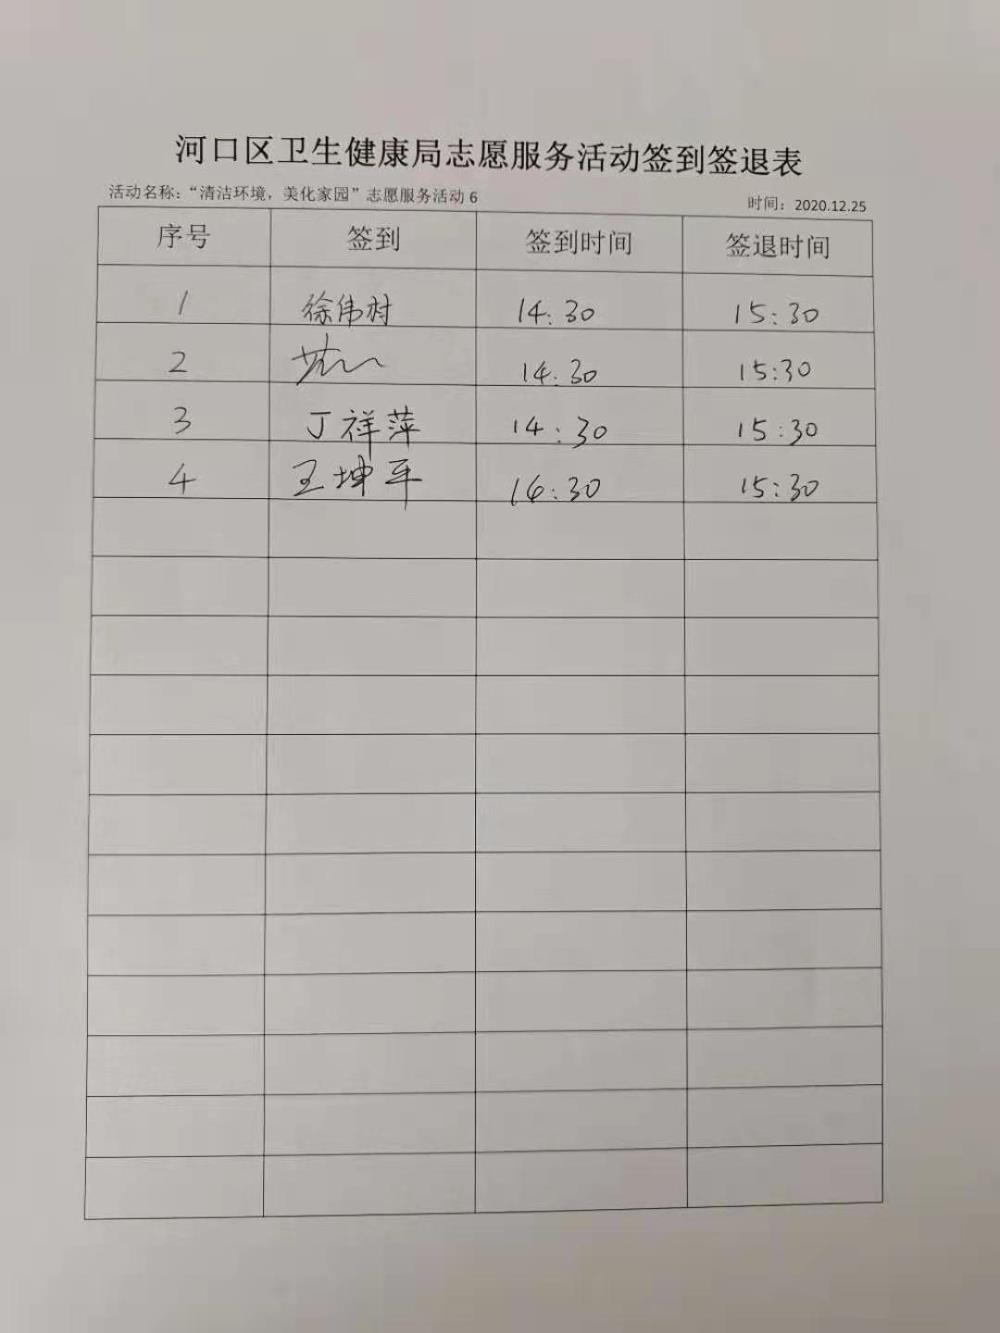 河口区卫生健康局志愿服务活动签到签退表
活动名称：“清洁环境，美化家园”志愿服务活动 6 时间：2020.12.25
序号 签到 签到时间 签退时间
1 徐伟村 14:30 15:30
2 14:30 15:30
3 丁祥萍 14:30 15:30
4 王坤平 14:30 15:30